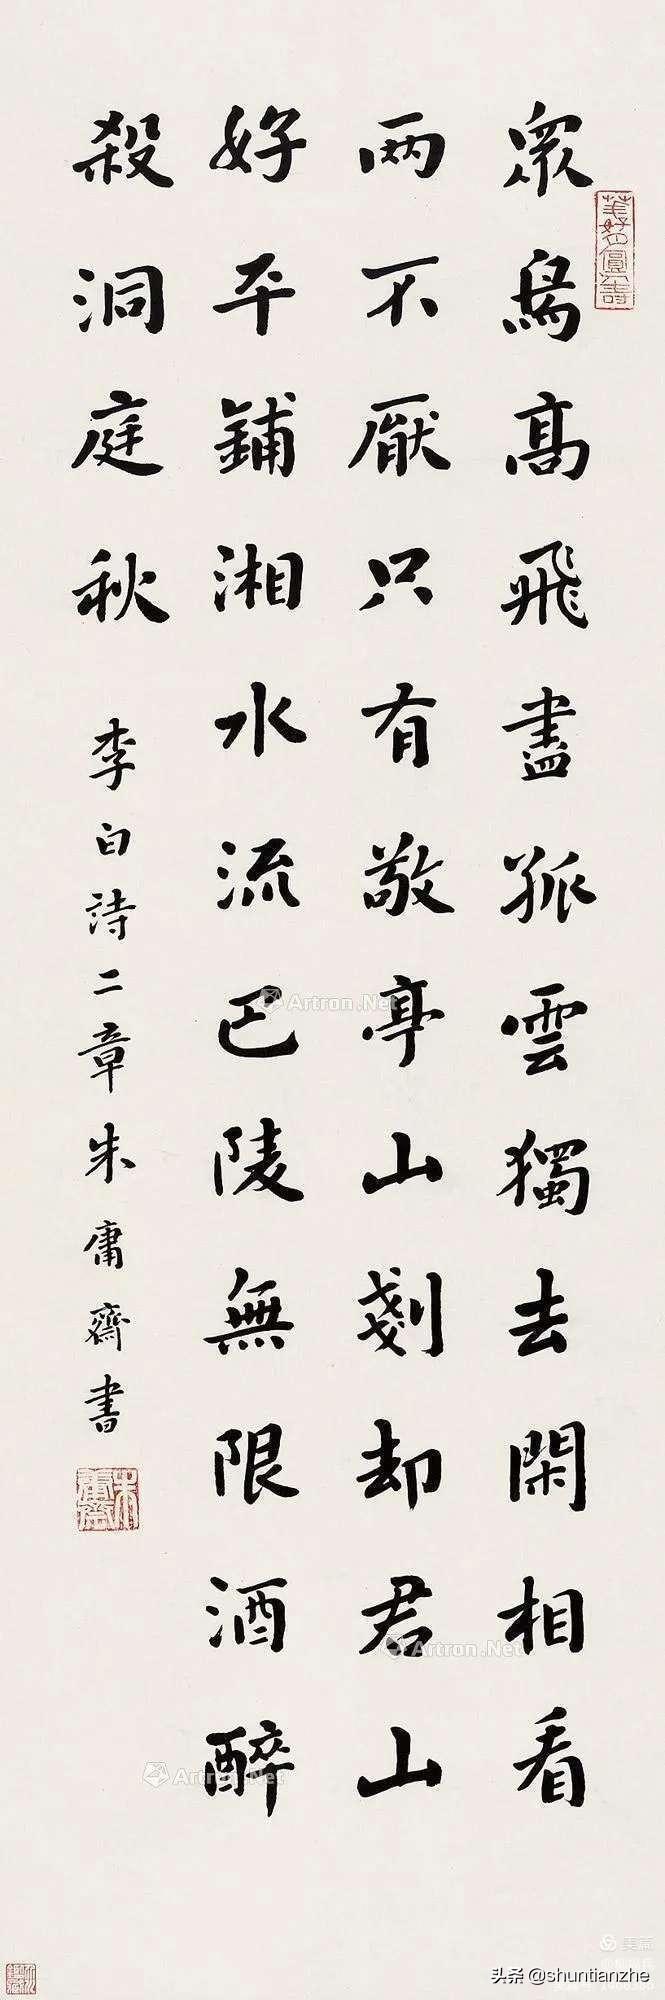 眾鳥高飛盡孤雲獨去閑相看
兩不厭只有敬亭山剗却君山
好平鋪湘水流巴陵無限酒醉
殺洞庭秋
李白詩二章朱庸齋書
朱庸齋
Artron.Net
Artron.Net
Artron.Net
美篇
头条 @shuntianzhe